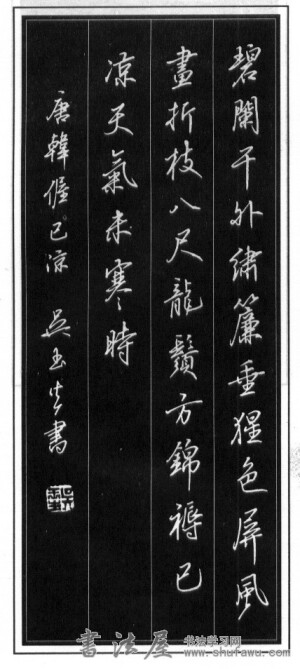 碧闌干外繡簾垂猩色屏風
畫折枝八尺龍鬚方錦褥已
涼天氣未寒時
唐韓偓已涼 吳玉生書
書法屋
书法学习网
www.shufawu.com